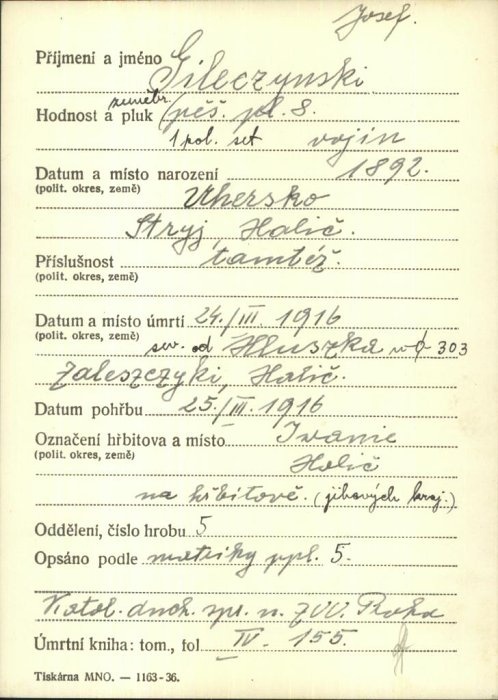 Josef.
Příjmení a jméno Gileczynski
zeměbr.
Hodnost a pluk pěš. pl. 8.
1 pol. set vojín
Datum a místo narození 1892.
(polit. okres, země) Uhersko
Stryj, Halič.
Příslušnost tamtéž.
(polit. okres, země)
Datum a místo úmrtí 24./III. 1916
(polit. okres, země) sev. od Hluszka 303
Zaleszczyki, Halič.
Datum pohřbu 25./III. 1916
Označení hřbitova a místo Iwanie
(polit. okres, země) Halič
na hřbitově. (jihových kraj.)
Oddělení, číslo hrobu 5
Opsáno podle matriky ppl. 5.
Katol. duch. spr. n. ZVV. Praha
Úmrtní kniha: tom., fol IV. 155.
Tiskárna MNO. — 1163-36.